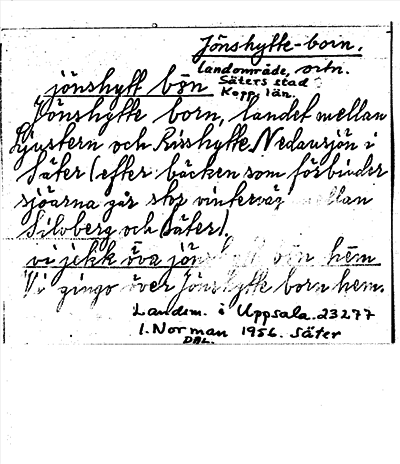 Jönshytte-born.
Landområde, ortn.
Säters stad
Kopp. län.
jönshytt bōn
Jönshytte born, landet mellan
Ljustern och Risshytte Nedansjön i
Säter (efter bäcken som förbinder
sjöarna går skog vinterväg mellan
Silvberg och Säter).
vi jekk öva jönshytt bōn hēm
Vi gingo över Jönshytte born hem.
Landsm. i Uppsala. 23277
I. Norman 1956. Säter
DAL.